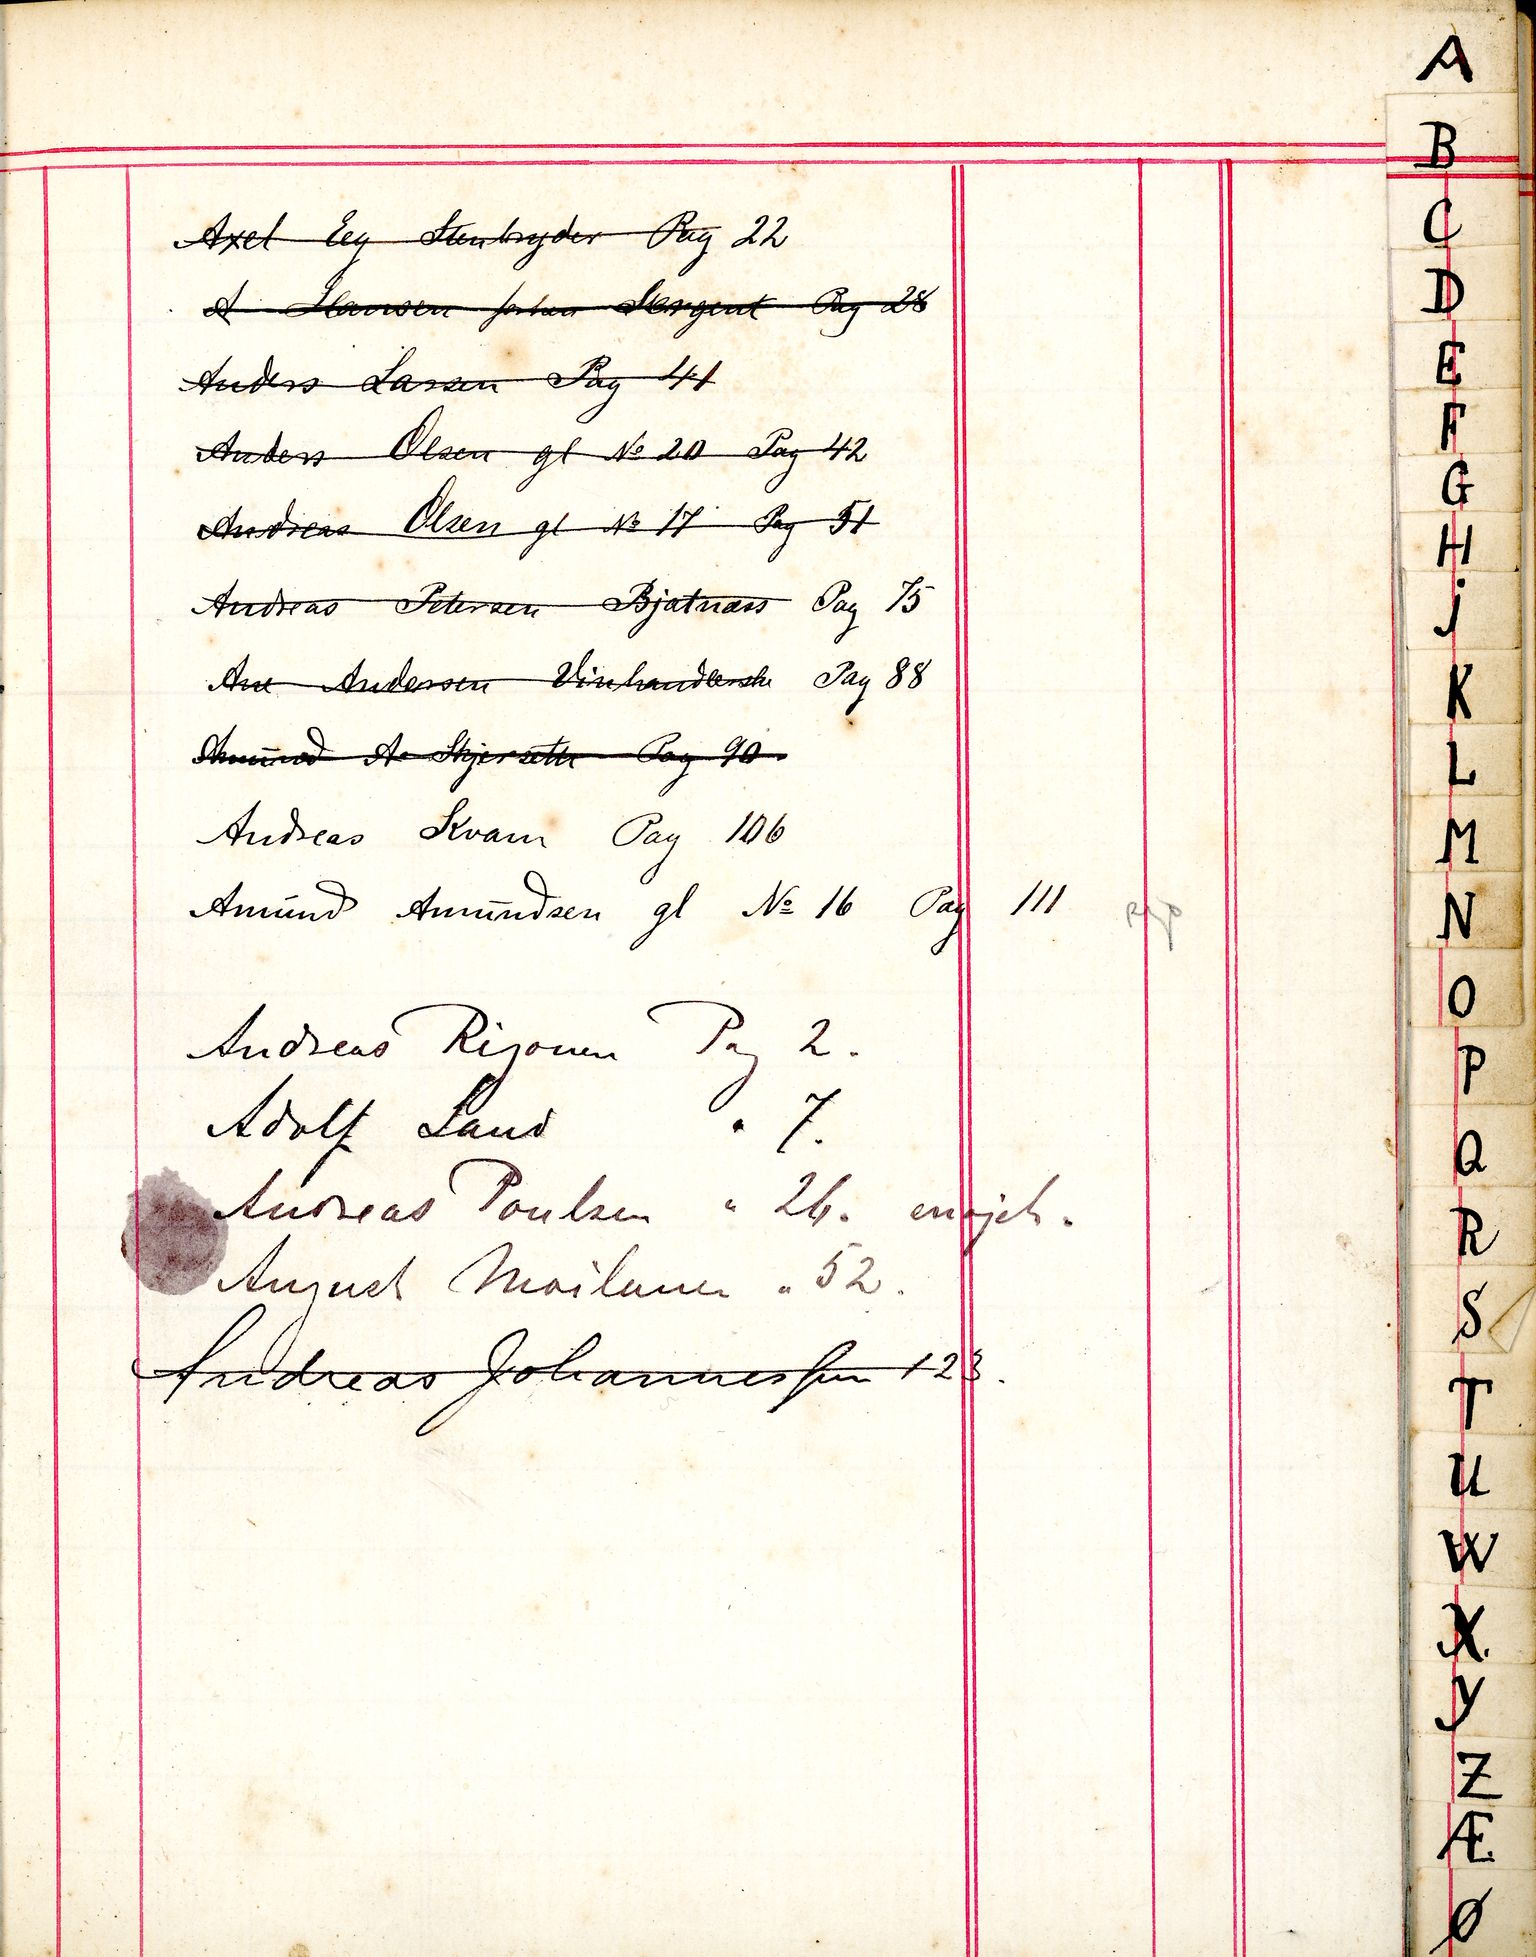 Axel Eeg Stenbryder Pag 22
A Hansen Sergent Pag 28
Anders Larsen Pag 41
Anders Olsen gl № 20 Pag 42
Andreas Olsen gl № 17 Pag 51
Andreas Petersen Bjatnæss Pag 75
Ane Andersen Vinhandlerske Pag 88
Amund A. Skjersetti Pag 90
Andreas Kvam Pag 106
Amund Amundsen gl № 16 Pag 111
Andreas Rizonen Pag 2.
Adolf Land " 7.
Andreas Poulsen " 26.
August Moilanen " 52.
Andreas Johannessen 123.
A
B
C
D
E
F
G
H
J
K
L
M
N
O
P
Q
R
S
T
U
W
X
Y
Z
Æ
Ø